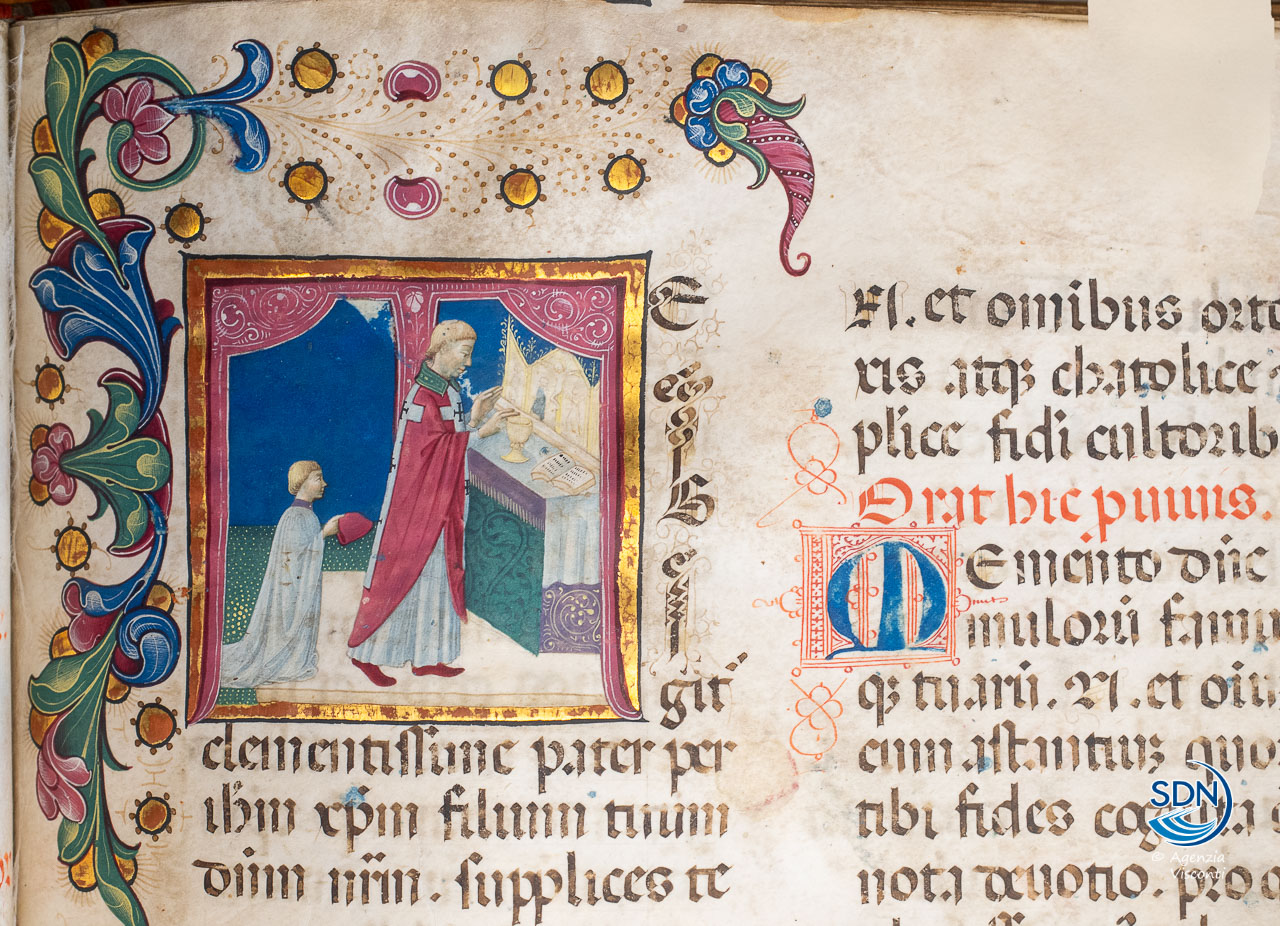 E
git
clementissime pater per
ihm xpm filium tuum
dnm nrm. supplices te
N. et omibus orto
xis atqꝫ chatolice
plice fidi cultorib
Orat hic p uiuis.
MEmento dne
mulorū famu
qꝫ tuarū. N. et oiu
cum astantiuꝫ quo
tibi fides cog
nota deuotio. pro q
SDN
© Agenzia
Visconti